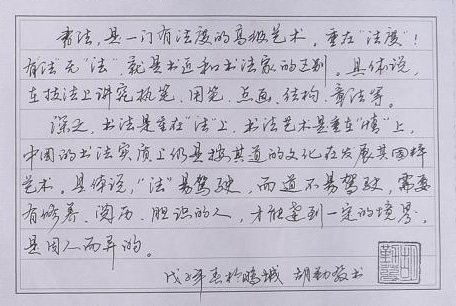 书法,是一门有法度的高级艺术。重在“法度”!
有“法”无“法”,就是书匠和书法家的区别。具体说,
在技法上讲究执笔、用笔、点画、结构、章法等。
深之,书法是重在“法”上,书法艺术是重在“情”上,
中国的书法实质上仍是按其道的文化在发展其国粹
艺术。具体说,“法”易驾驶,而道不易驾驶,需要
有修养、阅历、胆识的人,才能达到一定的境界,
是因人而异的。
戊子年春於鹏城 胡勤敬书